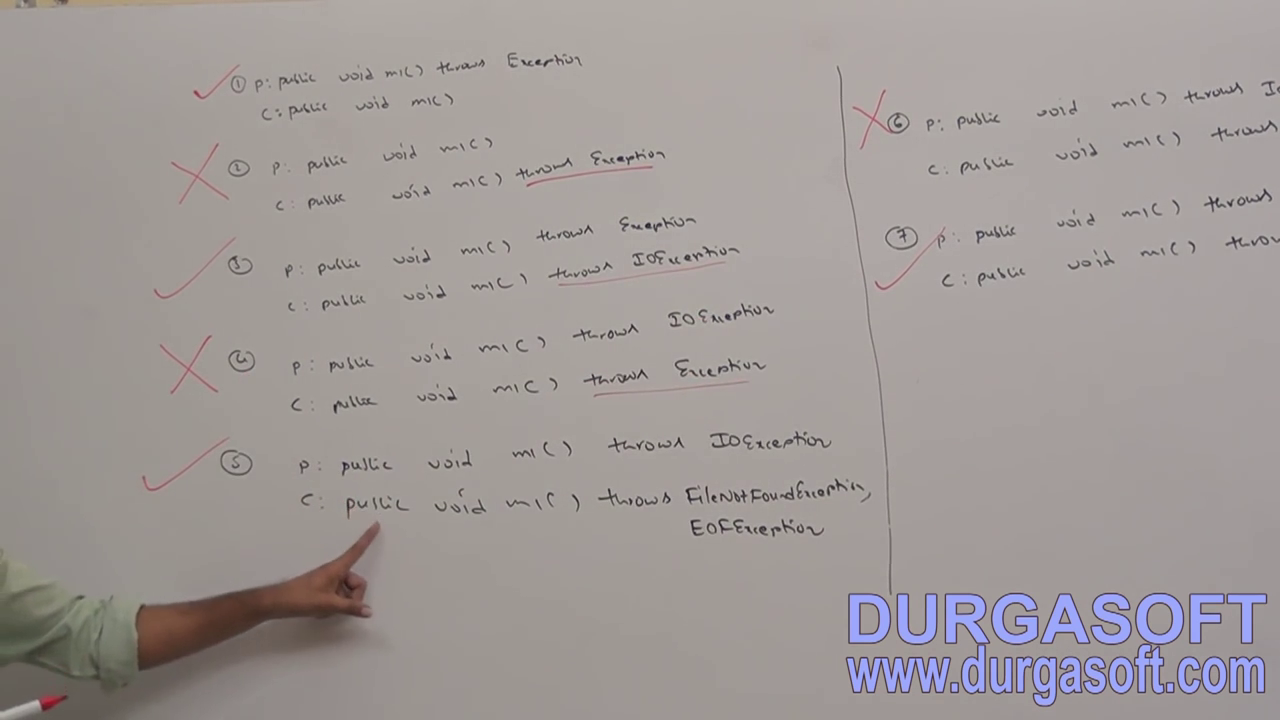 ① P: public void m1() throws Exception
C: public void m1()
② P: public void m1()
C: public void m1() throws Exception
③ P: public void m1() throws Exception
C: public void m1() throws IOException
④ P: public void m1() throws IOException
C: public void m1() throws Exception
⑤ P: public void m1() throws IOException
C: public void m1() throws FileNotFoundException,
EOFException
⑥ P: public void m1() throws
C: public void m1() throws
⑦ P: public void m1() throws
C: public void m1()
DURGASOFT
www.durgasoft.com